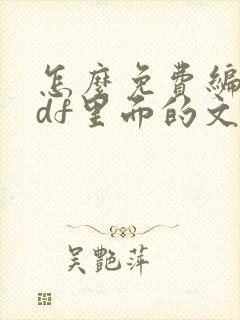 怎麼免費編
df里而的文
吳艷萍